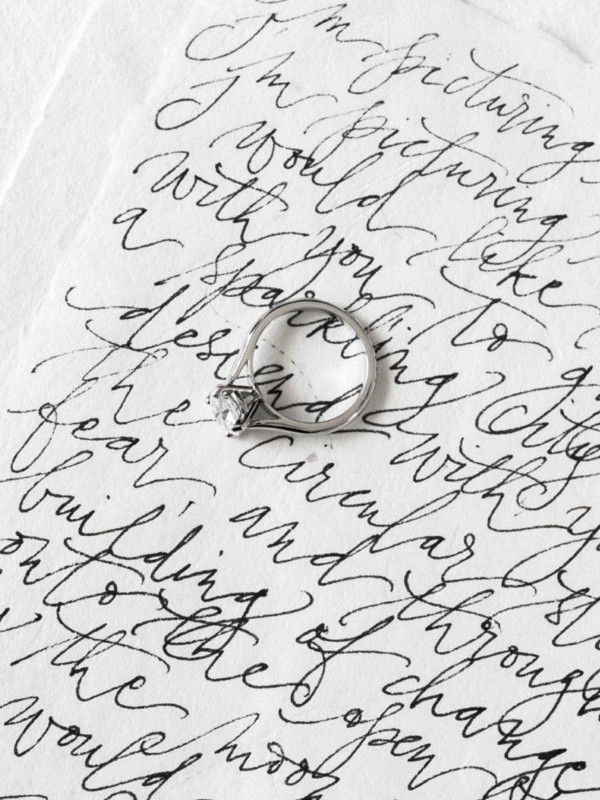 I'm picturing
I'm picturing
would like
with you to
a sparkling city
descend with
the circular
fear and through
building of change
onto the open
the moon
would